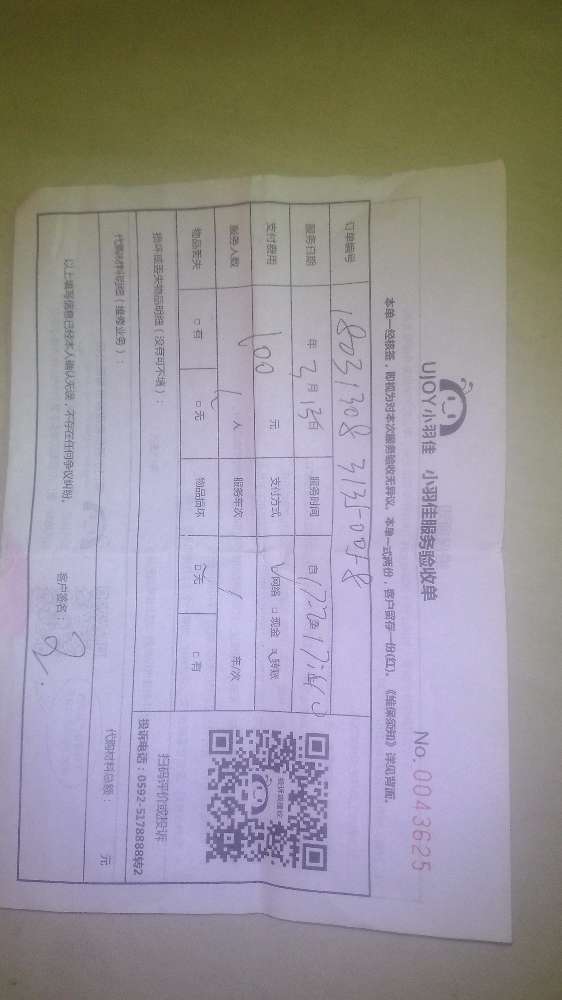 UJOY小羽佳 小羽佳服务验收单
No. 0043625
本单一经核签，即视为对本次服务验收无异议。本单一式两份，客户留存一份(红)。《维保须知》详见背面。
订单编号 18031308 3135-0058
服务日期 年 3月13日 服务时间 自17:20至17:40
支付费用 100 元 支付方式 ☑网络 □现金 □转账
服务人数 1 人 服务车次 1 车/次
物品丢失 □有 □无 物品损坏 □无 □有
损坏或丢失物品明细（没有可不填）：
扫码评价或投诉
投诉电话：0592-5178888转2
代购材料明细（维修业务）：
代购材料总额： 元
以上填写信息已经本人确认无误，不存在任何争议纠纷。
客户签名：